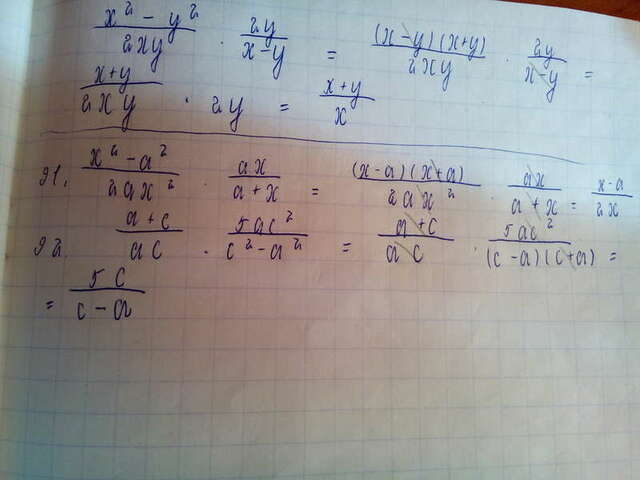 x² - y² / 2xy · 2y / x-y = (x-y)(x+y) / 2xy · 2y / x-y =
x+y / 2xy · 2y = x+y / x
91. x² - a² / 2ax² · ax / a+x = (x-a)(x+a) / 2ax² · ax / a+x = x-a / 2x
92. a+c / ac · 5ac² / c²-a² = a+c / ac · 5ac² / (c-a)(c+a) =
= 5c / c-a